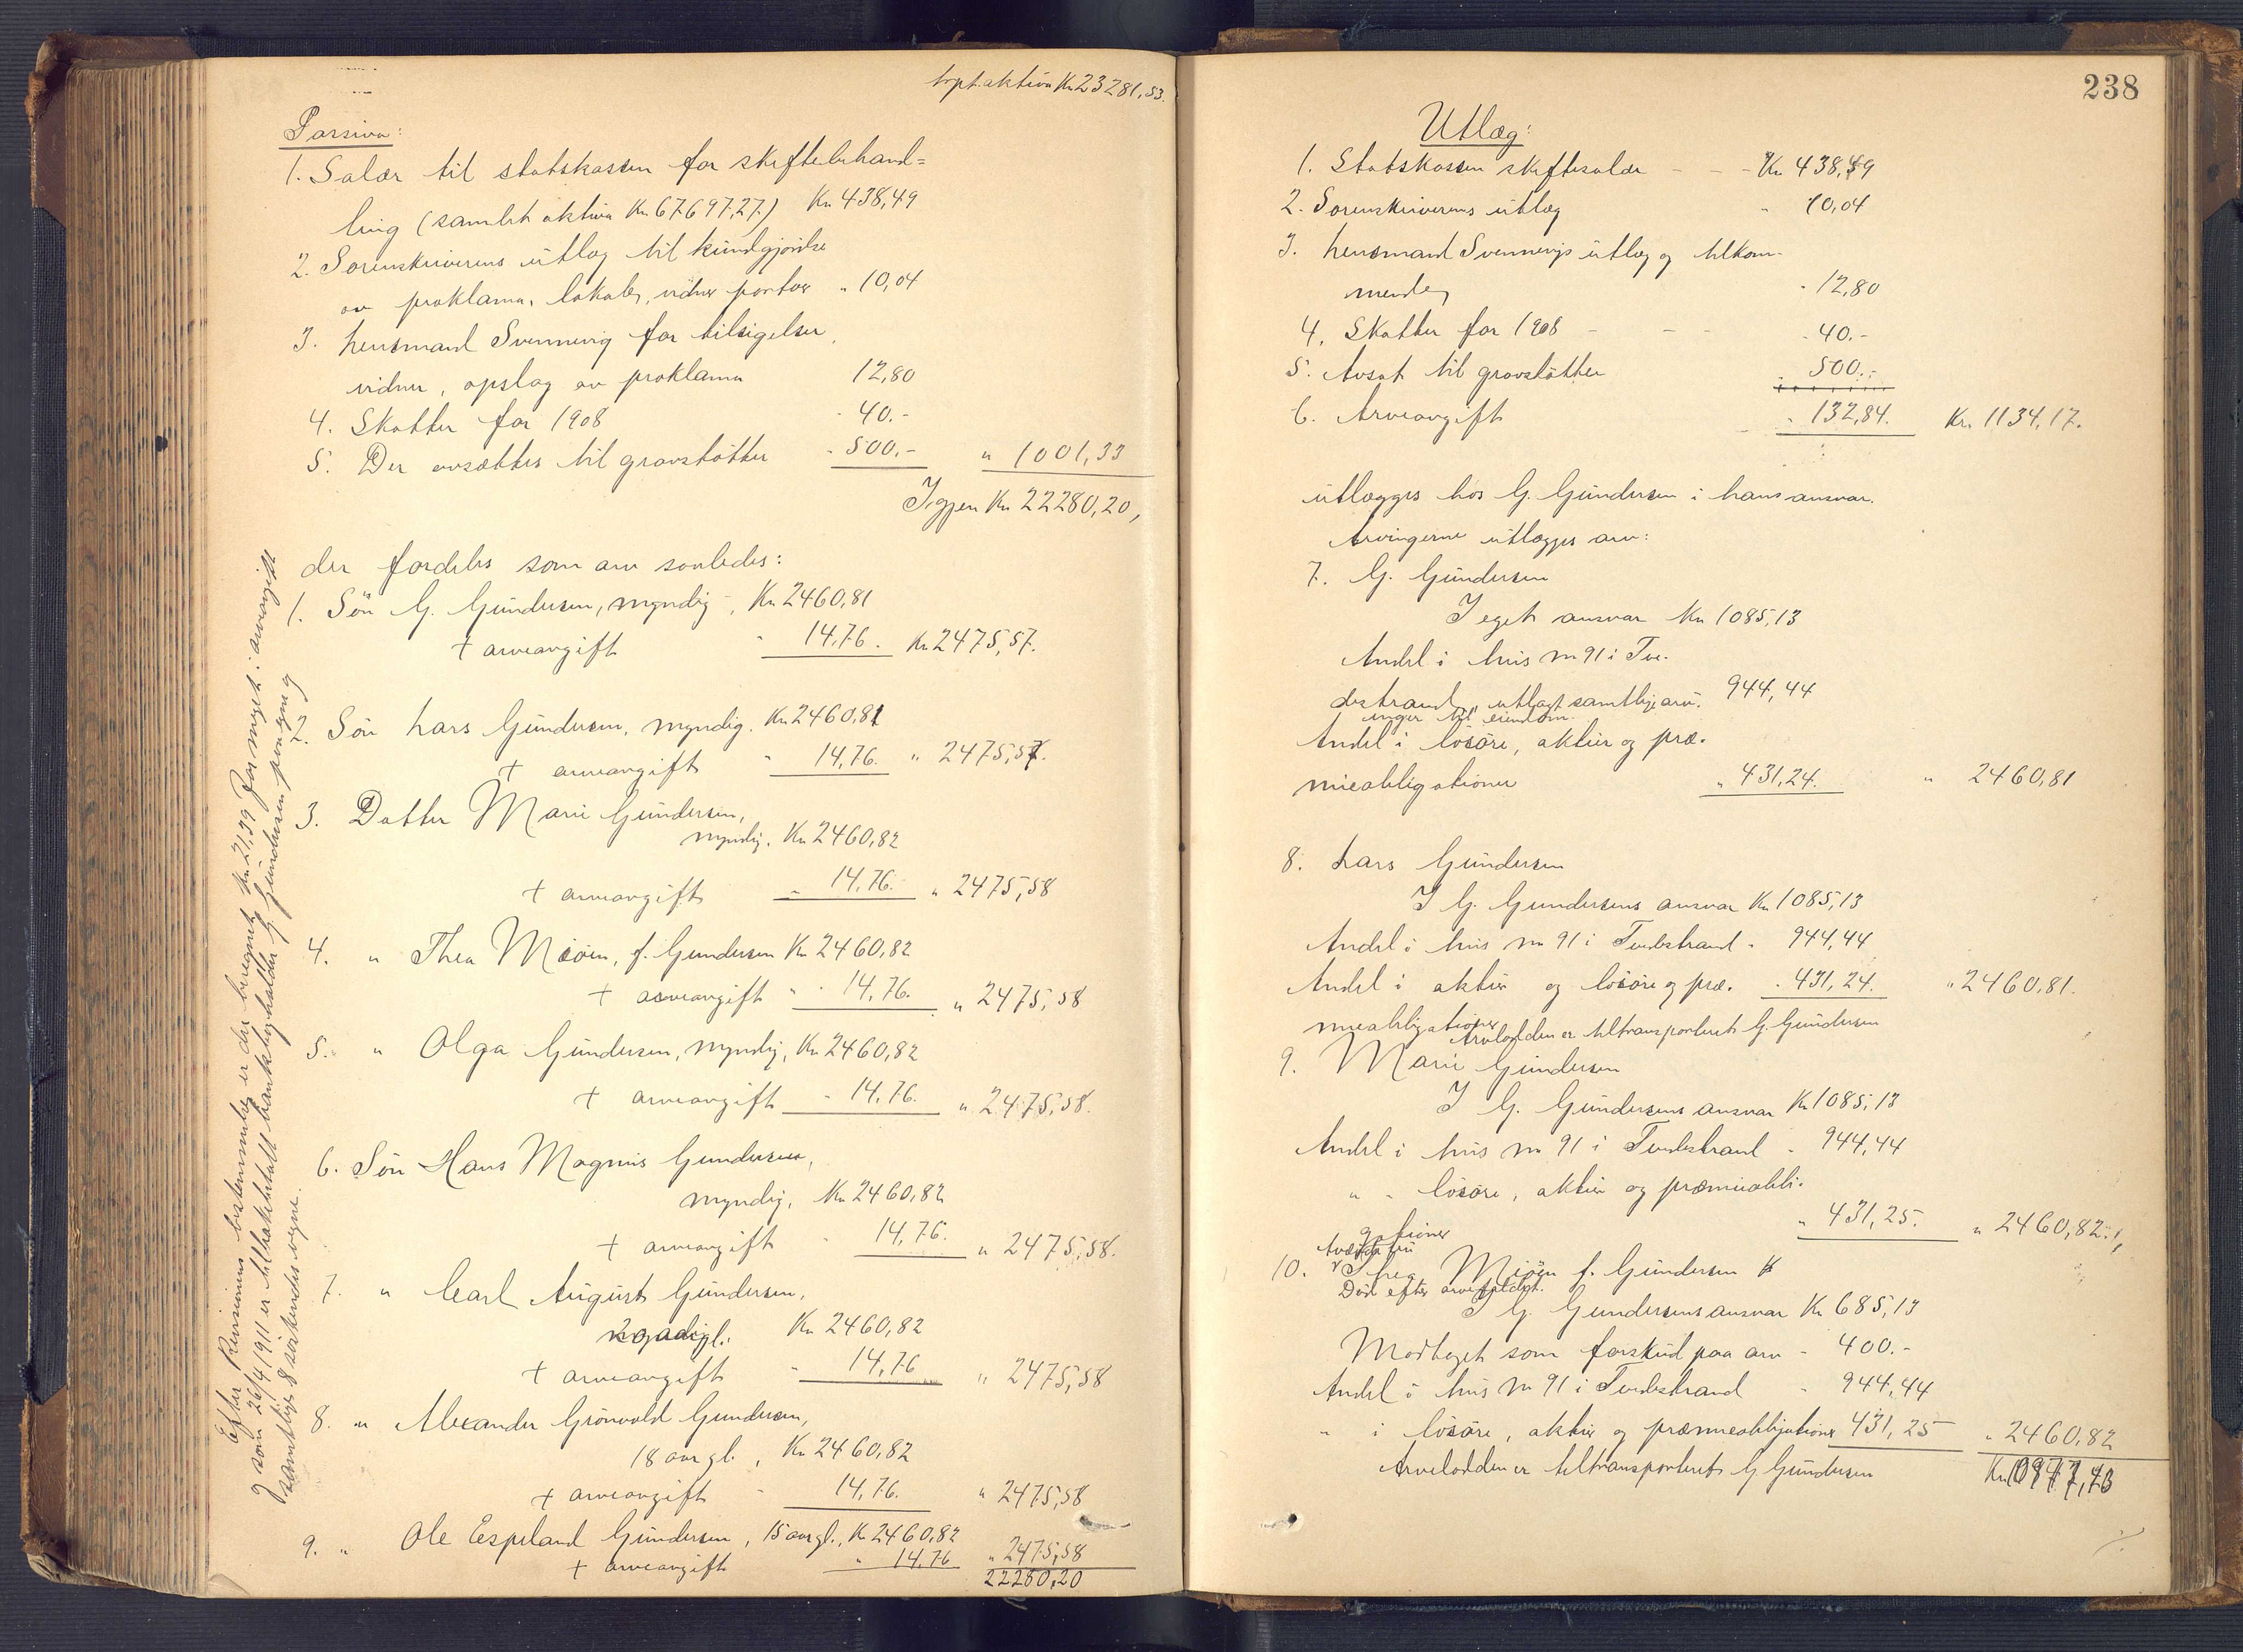 trpt. aktiva Kr. 23281,53.
Passiva:
1. Salær til statskassen for skiftebehand=
ling (samlet aktiva Kr. 67697,27.) Kr. 438,49
2. Sorenskriverens utlæg til kundgjørelse
av proklama, lokale, vidner, portoer " 10,04
3. Lensmand Svennevig for tilsigelser,
vidner, opslag av proklama 12,80
4. Skatter for 1908 - 40.-
5. Der avsættes til gravstøtter - 500.- " 1001,33
Igjen Kr. 22280,20,
der fordeles som arv saaledes:
1. Søn G. Gundersen, myndig, Kr. 2460,81
+ arveavgift " 14,76. Kr. 2475,57.
2. Søn Lars Gundersen, myndig. Kr. 2460,81
+ arveavgift " 14,76. " 2475,57.
3. Datter Marie Gundersen,
myndig. Kr. 2460,82
+ arveavgift " 14,76. " 2475,58
4. " Thea Mioen, f. Gundersen Kr. 2460,82
+ arveavgift " 14,76. " 2475,58
5. " Olga Gundersen, myndig, Kr. 2460,82
+ arveavgift " 14,76. " 2475,58.
6. Søn Hans Magnus Gundersen,
myndig, Kr. 2460,82
+ arveavgift " 14,76. " 2475,58.
7. " Carl August Gundersen,
20 aar gl. Kr. 2460,82
+ arveavgift " 14,76 " 2475,58
8. " Alexander Grönvold Gundersen,
18 aar gl., Kr. 2460,82
+ arveavgift " 14,76. " 2475,58
9. " Ole Espeland Gundersen, 15 aar gl., Kr. 2460,82
+ arveavgift " 14,76 " 2475,58
22280,20
Efter Revisionens bestemmelse er der beregnet Kr. 21,39 for meget i arveavgift
som 26/4 1911 er tilbakebetalt bankbygholder G. Gundersen paa egne og
samtlige 8 søskendes vegne.
238
Utlæg:
1. Statskassen skiftesalær - - - Kr. 438,49
2. Sorenskriverens utlæg " 10,04
3. Lensmand Svennevigs utlæg og tilkom-
mende - 12,80
4. Skatter for 1908 - - - 40.-
5. Avsat til gravstøtter - 500.-
6. Arveavgift " 132,84. Kr. 1134,17.
utlægges hos G. Gundersen i hans ansvar.
Arvingerne utlægges arv:
7. G. Gundersen
I eget ansvar Kr. 1085,13
Andel i hus nr 91 i Tve-
destrand, utlagt samtlige arv- 944,44
inger til eiendom.
Andel i løsøre, aktier og præ-
mieobligationer " 431,24. " 2460,81
8. Lars Gundersen
I G. Gundersens ansvar Kr. 1085,13
Andel i hus nr 91 i Tvedestrand - 944,44
Andel i aktier og løsøre og præ- - 431,24. " 2460,81.
mieobligationer
Arvelodden er tiltransporteret G. Gundersen
9. Marie Gundersen
I G. Gundersens ansvar Kr. 1085,13
Andel i hus nr 91 i Tvedestrand - 944,44
" - løsøre, aktier og præmieobli-
gationer " 431,25. " 2460,82.
10. Thea Mioen f. Gundersen
Død efter arvefaldet.
I G. Gundersens ansvar Kr. 685,13
Modtaget som forskud paa arv - 400.-
Andel i hus nr 91 i Tvedestrand - 944,44
" i løsøre, aktier og præmieobligationer 431,25 " 2460,82
Arvelodden er tiltransporteret G. Gundersen